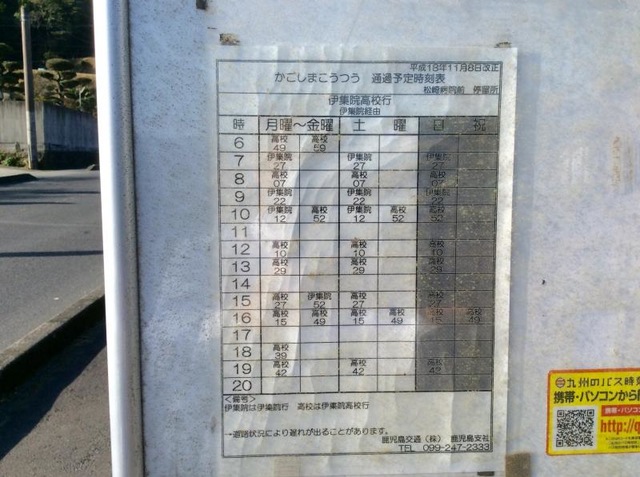 平成18年11月8日改正
かごしまこうつう 通過予定時刻表
松崎病院前 停留所
伊集院高校行
伊集院経由
時 月曜～金曜 土 曜 日 祝
6 高校 49 高校 59
7 伊集院 27 伊集院 27 伊集院 27
8 高校 07 高校 07 高校 07
9 伊集院 22 伊集院 22 伊集院 22
10 伊集院 12 高校 52 伊集院 12 高校 52 52
11
12 高校 10 高校 10 高校 10
13 高校 29 高校 29 高校 29
14
15 高校 27 伊集院 52 高校 27 高校 27
16 高校 15 高校 49 高校 15 高校 49 高校 15 高校 49
17
18 高校 39
19 高校 42 高校 42 高校 42
20
＜備考＞
伊集院は伊集院行 高校は伊集院高校行
→道路状況により遅れが出ることがあります。
鹿児島交通（株） 鹿児島支社
TEL 099-247-2333
九州のバス時刻
携帯・パソコンから
携帯・パソコ
http://q